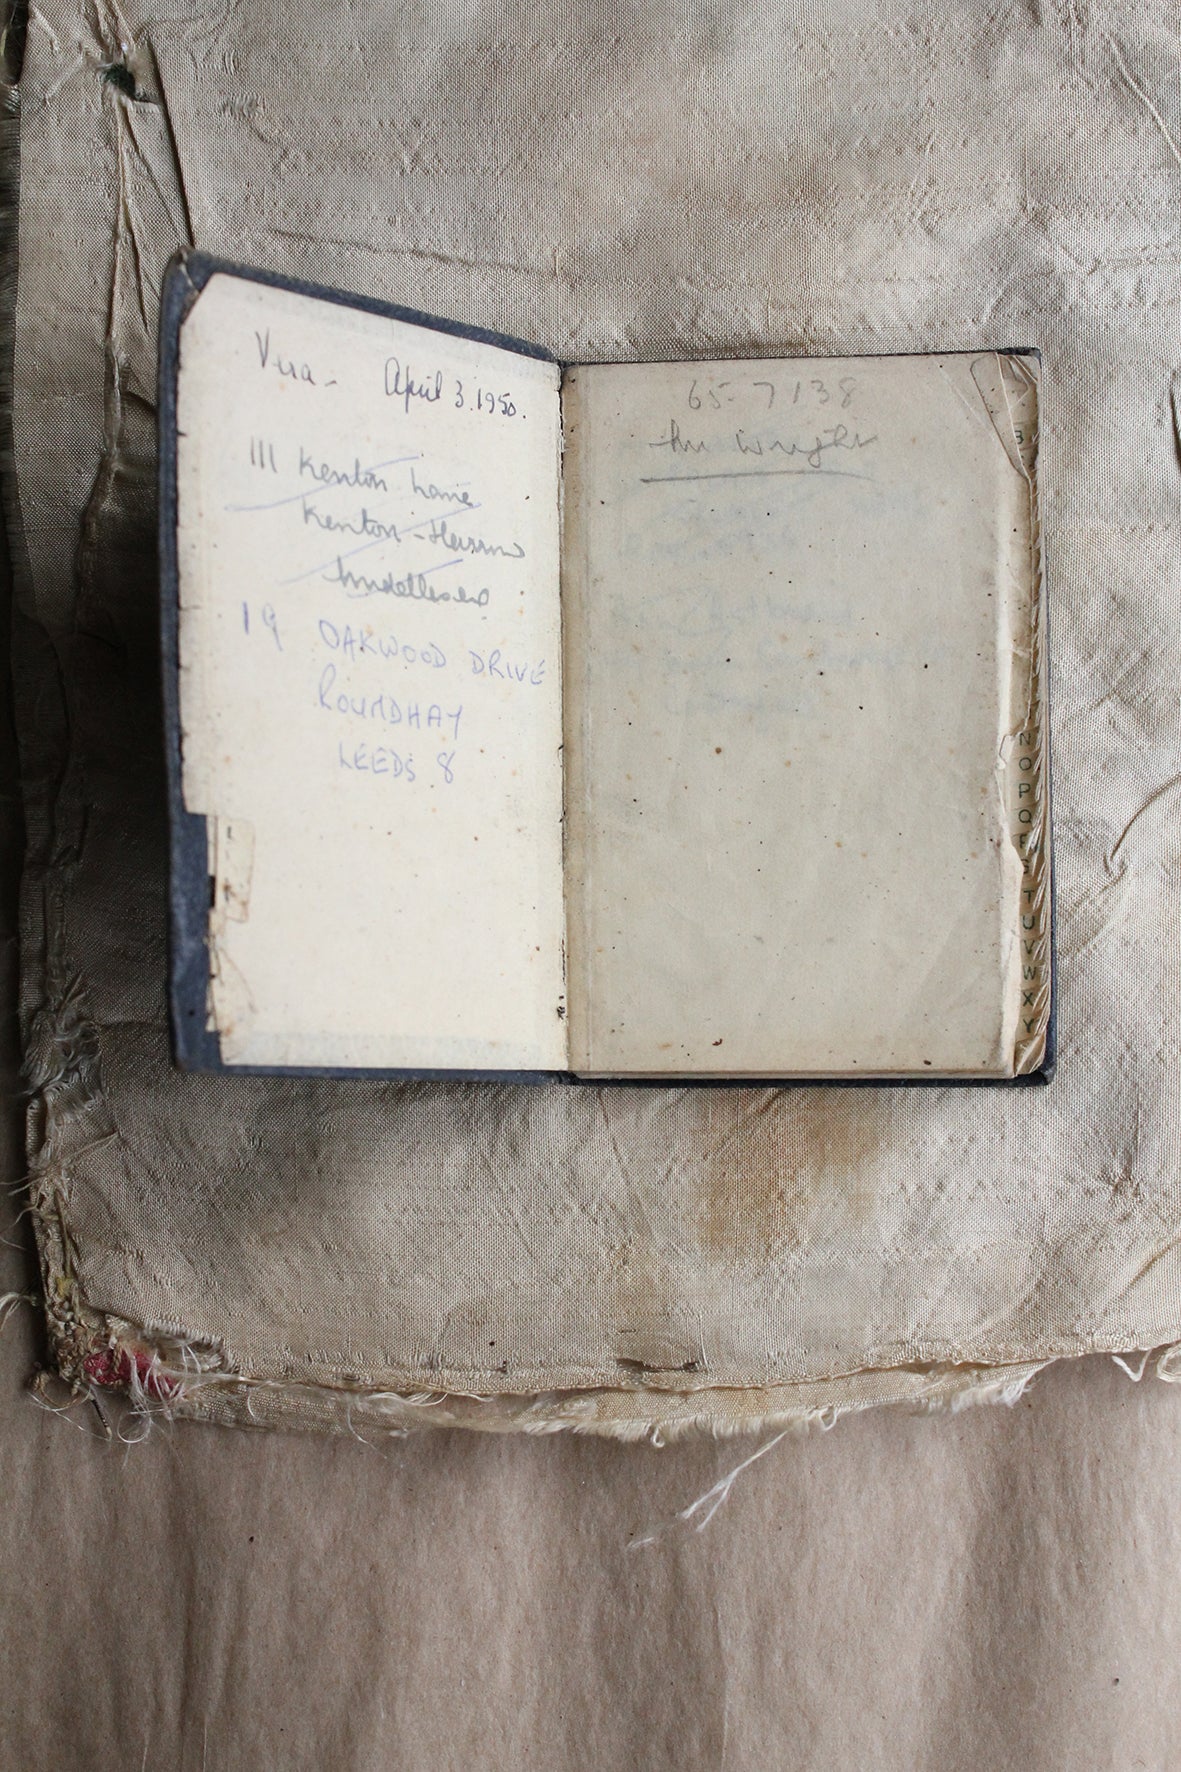 Vera - April 3. 1950.
111 Kenton Lane
Kenton - Harrow
Middlesex
19 OAKWOOD DRIVE
ROUNDHAY
LEEDS 8
65-7138
Mr Wright
B
N
O
P
Q
R
S
T
U
V
W
X
Y